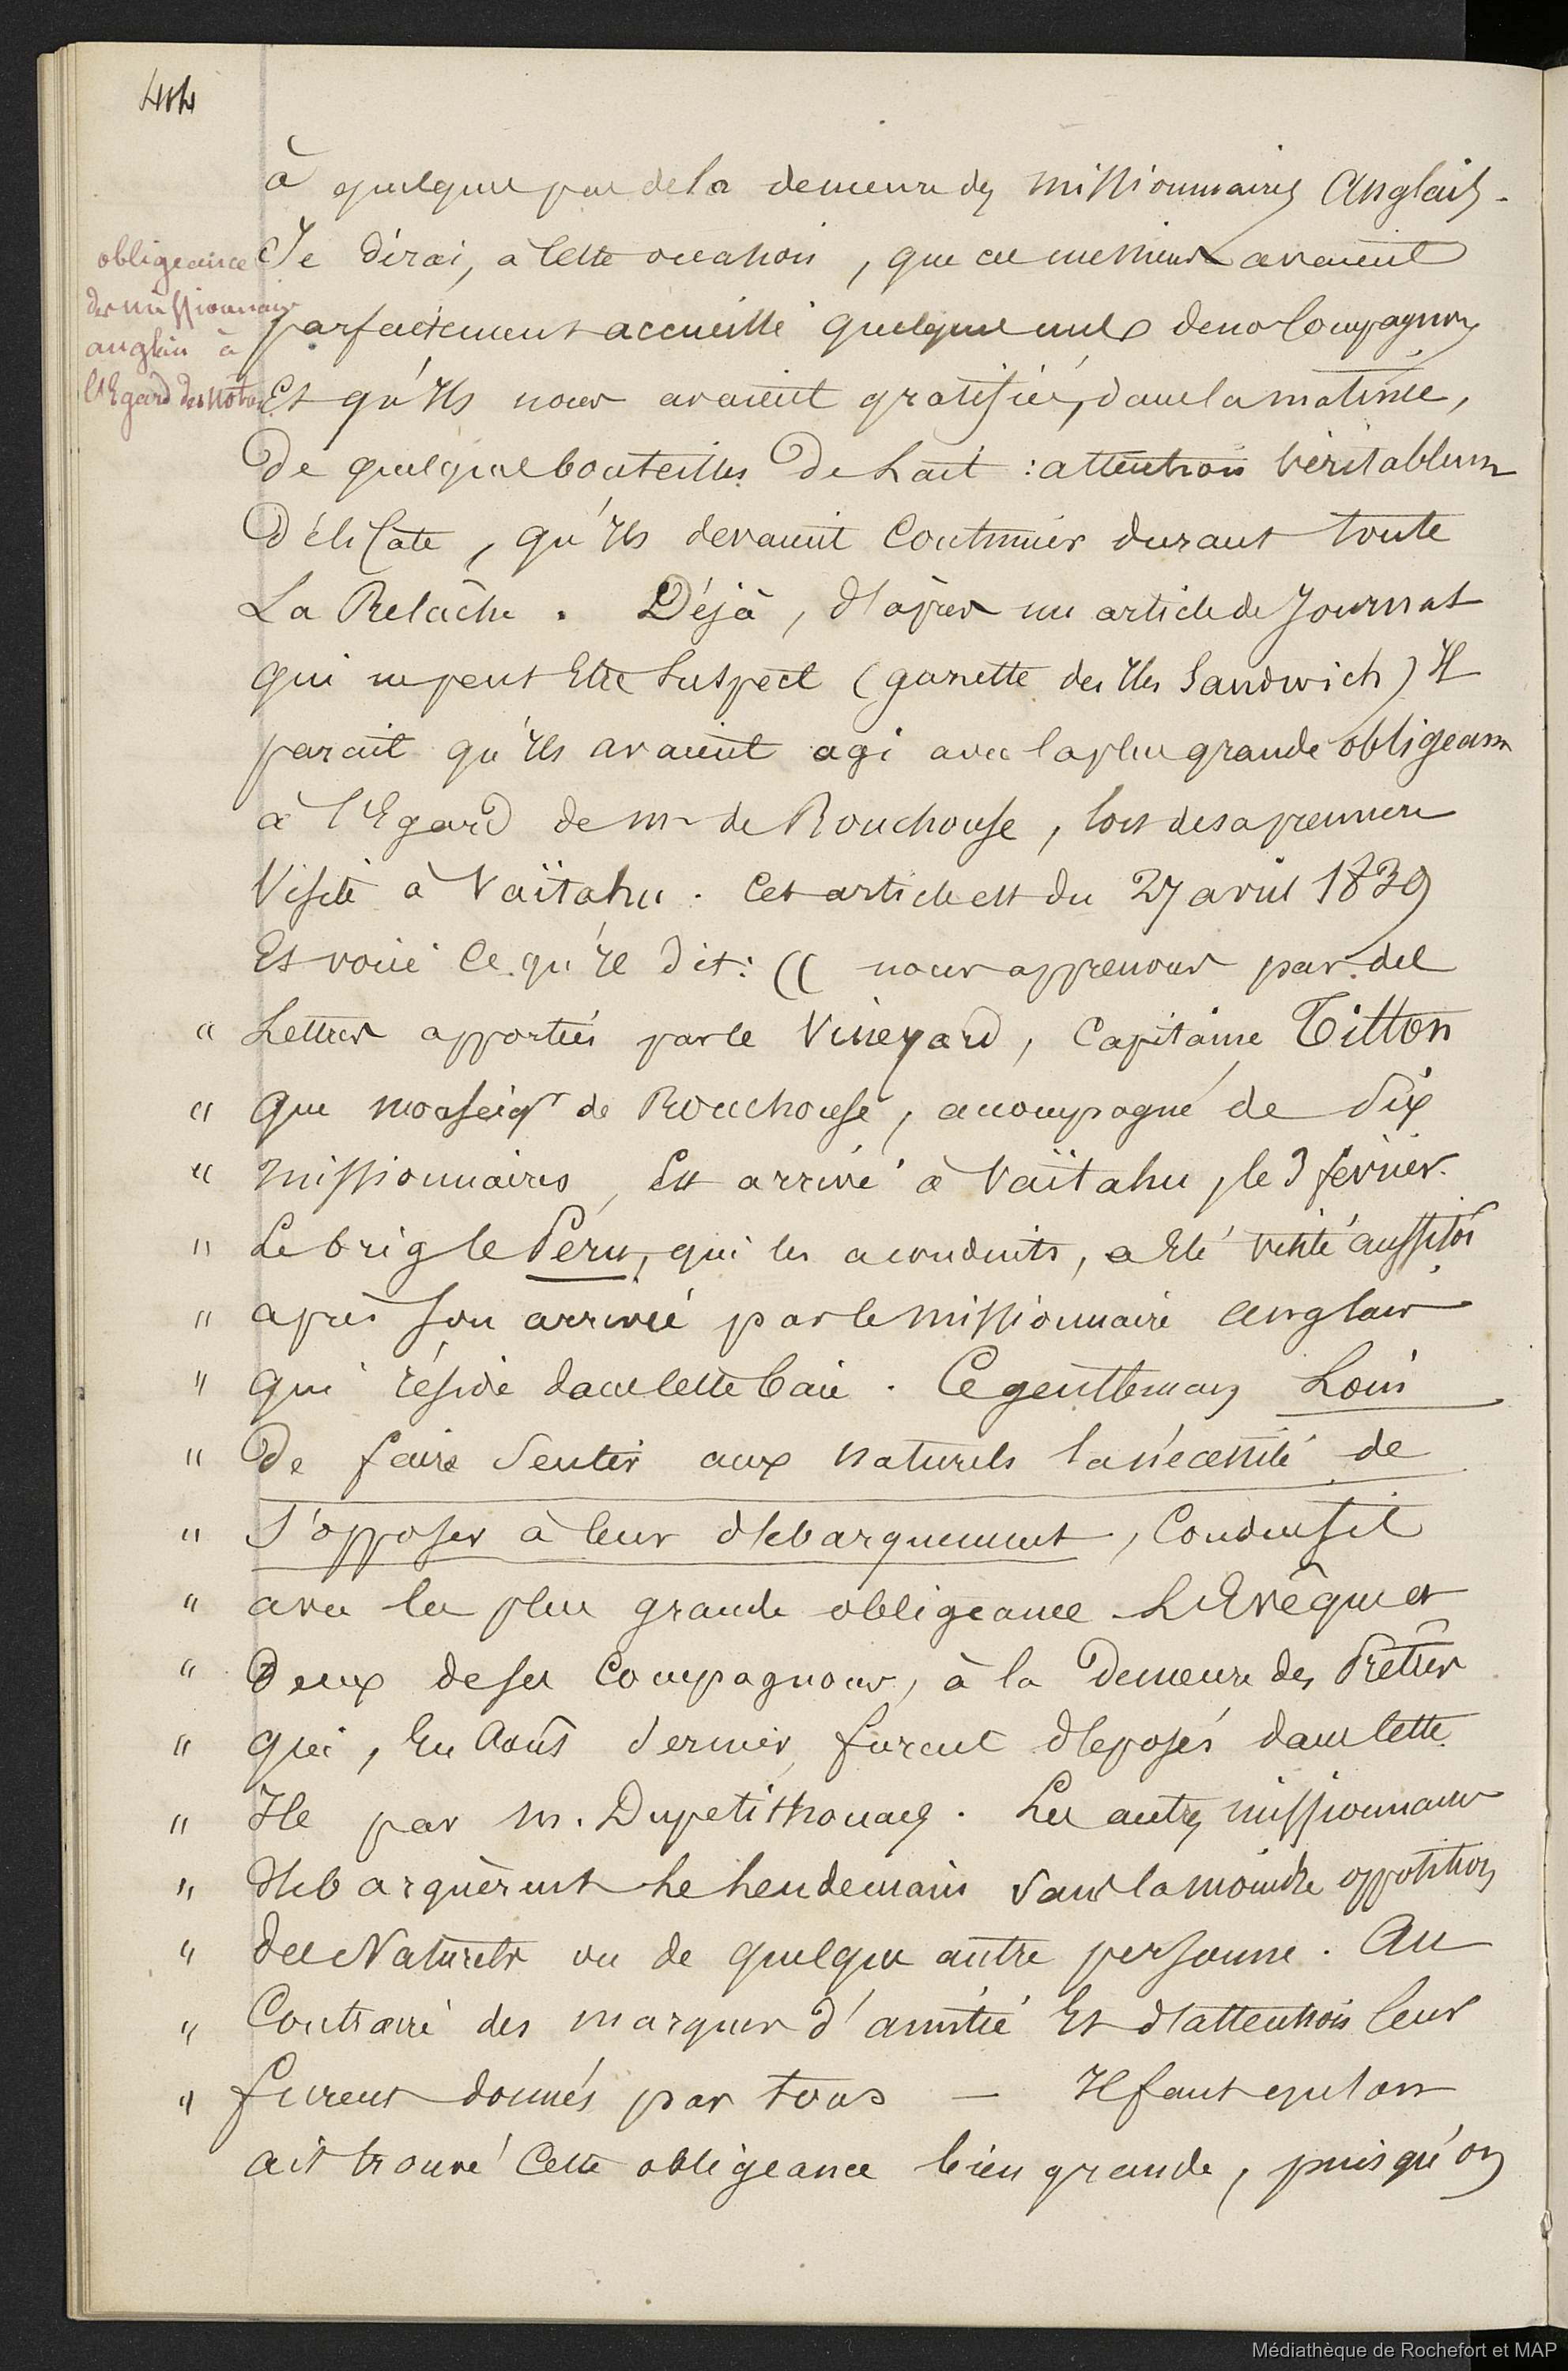 414
à quelques pas de la demeure des missionnaires Anglais.
obligeance
des missionnaires
anglais à
l'Egard des notres
Je dirai, à cette occasion, que ces messieurs avaient
parfaitement accueilli quelques uns de nos Compagnons
Et qu'Ils nous avaient gratifiés, dans la matinée,
De quelques bouteilles De Lait : attention véritablement
Délicate, qu'Ils devaient Continuer durant toute
La Relâche. Déjà, d'après un article de Journal
qui ne peut Etre Suspect (gazette des Iles Sandwich) Il
parait qu'Ils avaient agi avec la plus grande obligeance
à l'Egard de Mr de Rouchouse, lors de sa premiere
Visite à Vaïtahu. Cet article est du 27 avril 1839
Et voici Ce qu'Il dit: (( nous apprenons par des
" Lettres apportées par le Vineyard, Capitaine Titton
" Que monseigr de Rouchouse, accompagné de Six
" missionnaires, Est arrivé à Vaïtahu, le 3 février.
" Le brig le Péru, qui les a conduits, a Eté visité aussitôt
" après son arrivée par le missionnaire anglais
" Qui réside dans cette baie. Ce gentleman Loin
" De faire Sentir aux naturels la nécessité de
" S'opposer à leur débarquement, Conduisit
" avec la plus grande obligeance L'Evêque et
" Deux de ses Compagnons, à la Demeure des Prêtres
" qui, En Août dernier, furent déposés dans cette
" Ile par m. Dupetithouars. Les autres missionnaires
" débarquèrent Le Lendemain sans la moindre opposition
" des Naturels ou de quelque autre personne. Au
" Contraire des marques d'amitié Et d'attention leur
" furent donnés par tous — Il faut qu'on
ait trouvé Cette obligeance bien grande, puisqu'on
Médiathèque de Rochefort et MAP